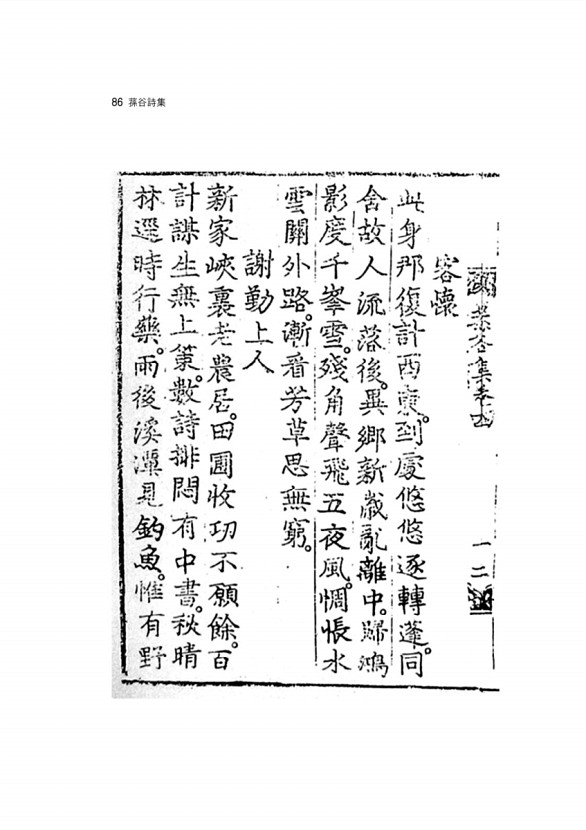 86 蓀谷詩集
蓀谷集卷四 一二
客懷
此身那復計西東。到處悠悠逐轉蓬。同
舍故人流落後。異鄕新歲亂離中。歸鴻
影度千峯雪。殘角聲飛五夜風。惆悵水
雲關外路。漸看芳草思無窮。
謝勤上人
新家峽裏老農居。田圃收功不願餘。百
計謀生無上策。數詩排悶有中書。秋晴
林逕時行藥。雨後溪潭見釣魚。惟有野